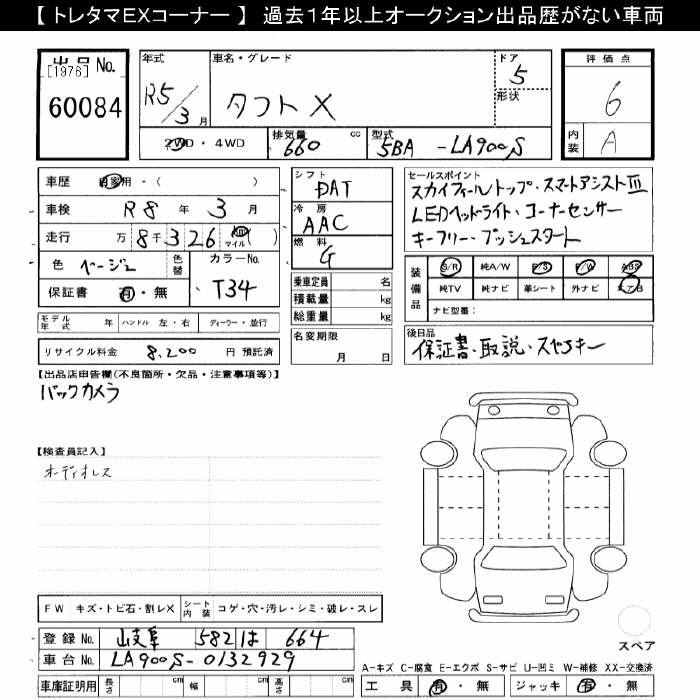 【 トレタマEXコーナー 】 過去1年以上オークション出品歴がない車両
出品No.
[1976]
60084
年式
R5/3月
車名・グレード
タフト X
ドア
5
形状
評価点
6
内装
A
2WD・4WD
排気量
660 cc
型式
5BA - LA900S
車歴 自家用・( )
車検 R8年 3月
走行 万 8千326 km マイル ( )
色 ベージュ
色替
カラーNo.
T34
保証書 有・無
シフト
DAT
冷房
AAC
燃料
G
乗車定員 名
積載量 kg
総重量 kg
名変期限
月 日
セールスポイント
スカイフィールトップ・スマートアシストⅢ
LEDヘッドライト・コーナーセンサー
キーフリー・プッシュスタート
装備品
S/R 純A/W P/S P/W ABS
純TV 純ナビ 革シート 外ナビ エアB
ナビ型番:
モデル年式 年 ハンドル 左・右 ディーラー・並行
リサイクル料金 8,200 円 預託済
後日品
保証書・取説・スペアキー
【出品店申告欄(不良箇所・欠品・注意事項等)】
バックカメラ
【検査員記入】
オーディオレス
FW キズ・トビ石・割レX
シート内装 コゲ・穴・汚レ・シミ・破レ・スレ
登録No. 岐阜 582 は 664
車台No. LA900S-0132929
スペア
A-キズ C-腐食 E-エクボ S-サビ U-凹ミ W-補修 XX-交換済
車庫証明用 長さ cm 幅 cm 高さ cm
工具 有・無 ジャッキ 有・無